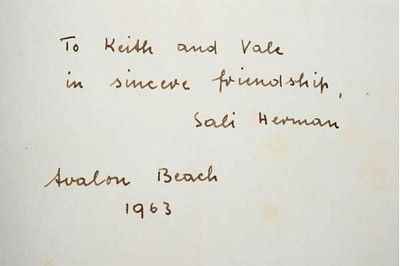 To Keith and Vale
in sincere friendship,
Sali Herman
Avalon Beach
1963